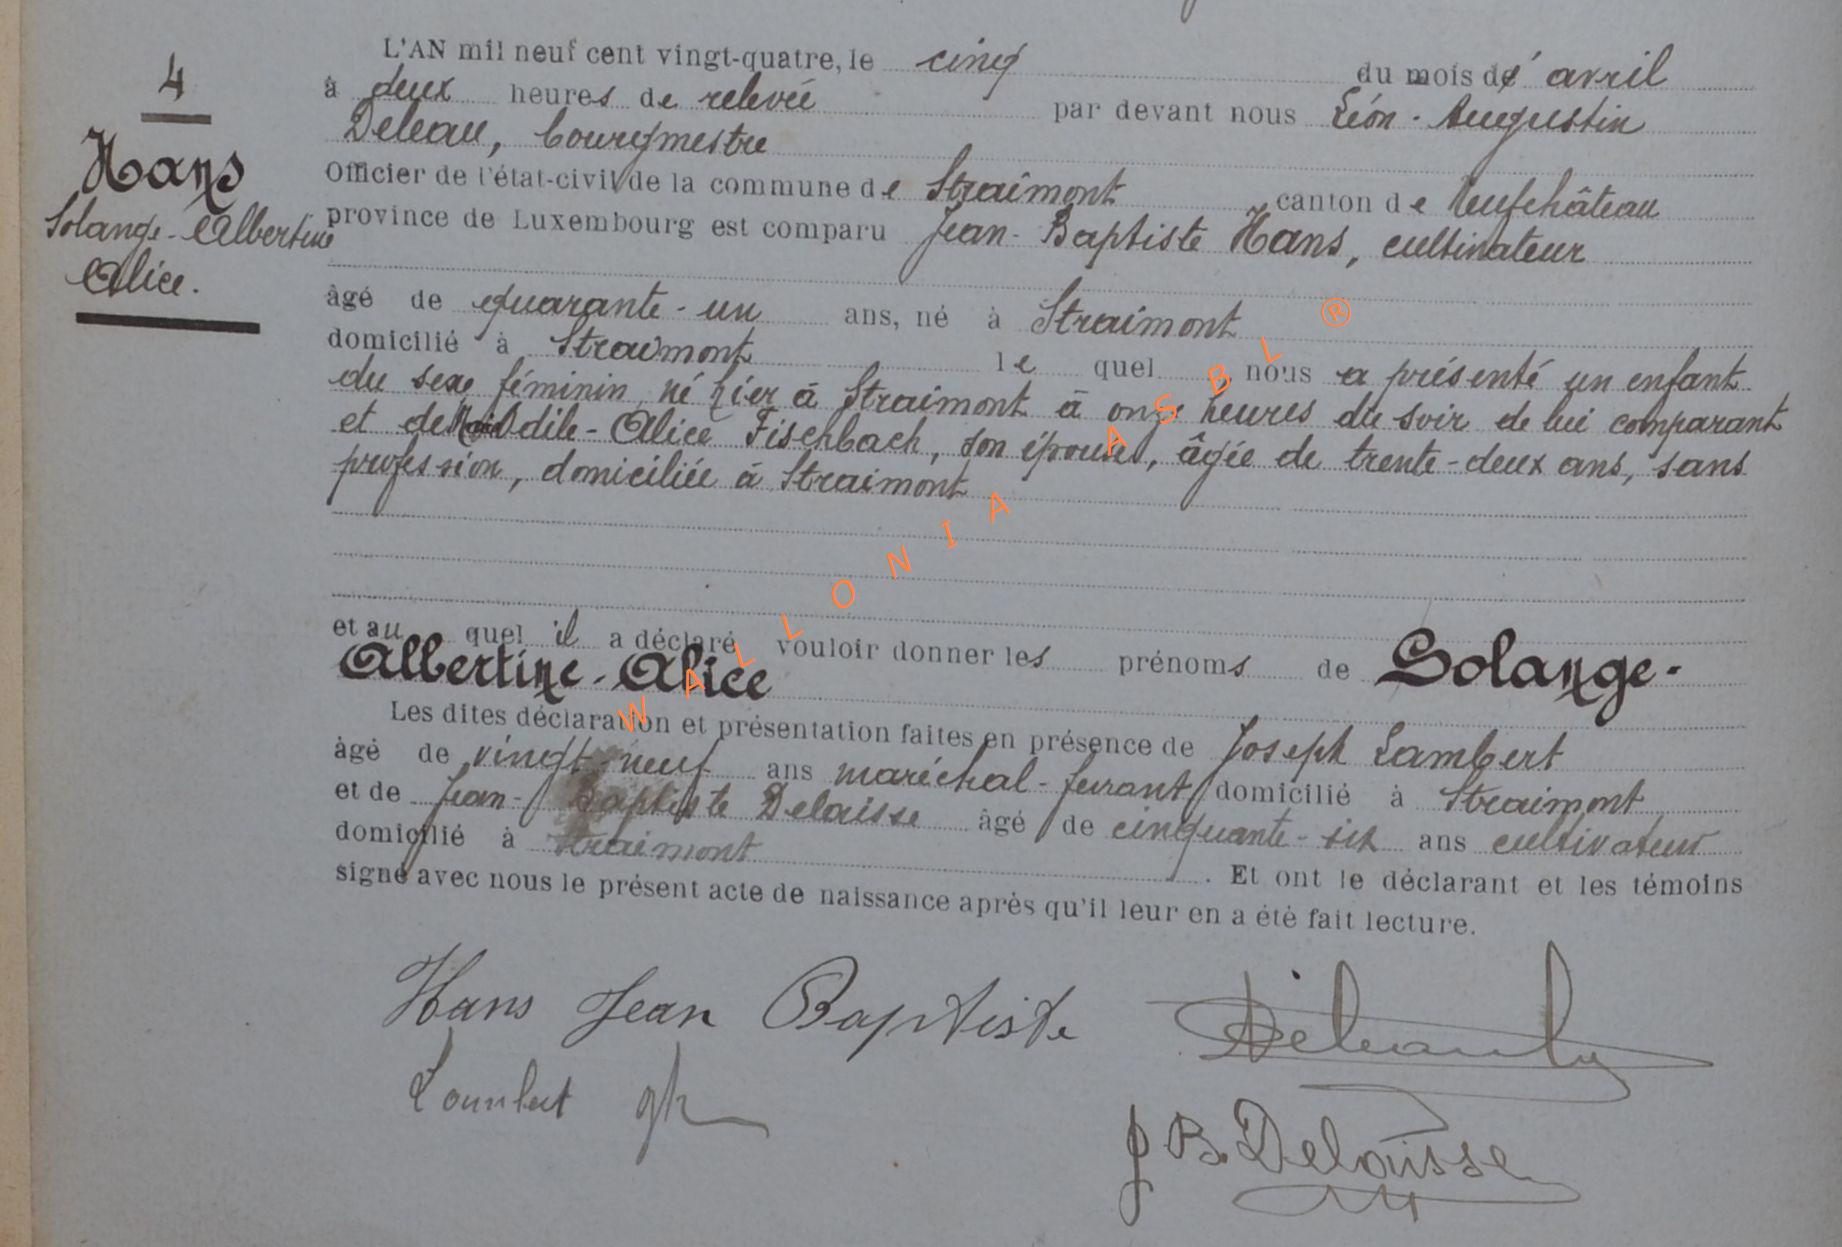 4
Hans
Solange-Albertine
Alice.
L'AN mil neuf cent vingt-quatre, le cinq du mois d'avril
à deux heures de relevée par devant nous Léon-Augustin
Deleau, bourgmestre
Officier de l'état-civil de la commune de Straimont canton de Neufchâteau
province de Luxembourg est comparu Jean-Baptiste Hans, cultivateur
âgé de quarante-un ans, né à Straimont
domicilié à Straimont lequel nous a présenté un enfant
du sexe féminin né hier à Straimont à onze heures du soir de lui comparant
et de Odile-Alice Fischbach, son épouse, âgée de trente-deux ans, sans
profession, domiciliée à Straimont
et au quel il a déclaré vouloir donner les prénoms de Solange-
Albertine-Alice
Les dites déclaration et présentation faites en présence de Joseph Lambert
âgé de vingt-neuf ans maréchal-ferrant domicilié à Straimont
et de Jean-Baptiste Delaisse âgé de cinquante-six ans cultivateur
domicilié à Straimont. Et ont le déclarant et les témoins
signé avec nous le présent acte de naissance après qu'il leur en a été fait lecture.
Hans Jean Baptiste
Lambert
J B. Delaisse
WALLONIA ASBL ®